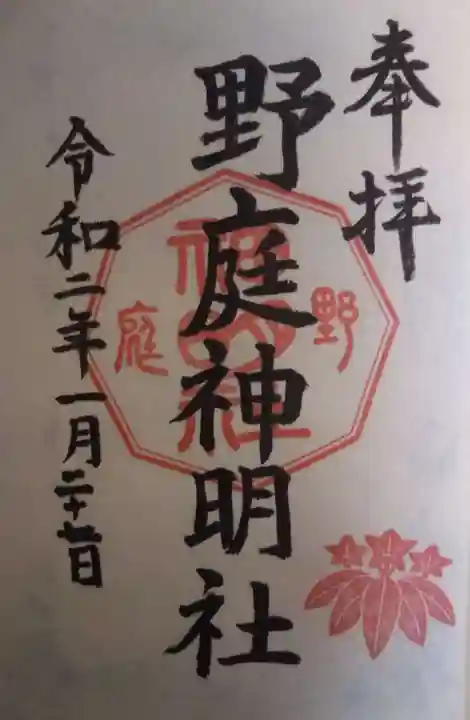 奉拝
野庭神明社
令和二年一月二十日
野
庭